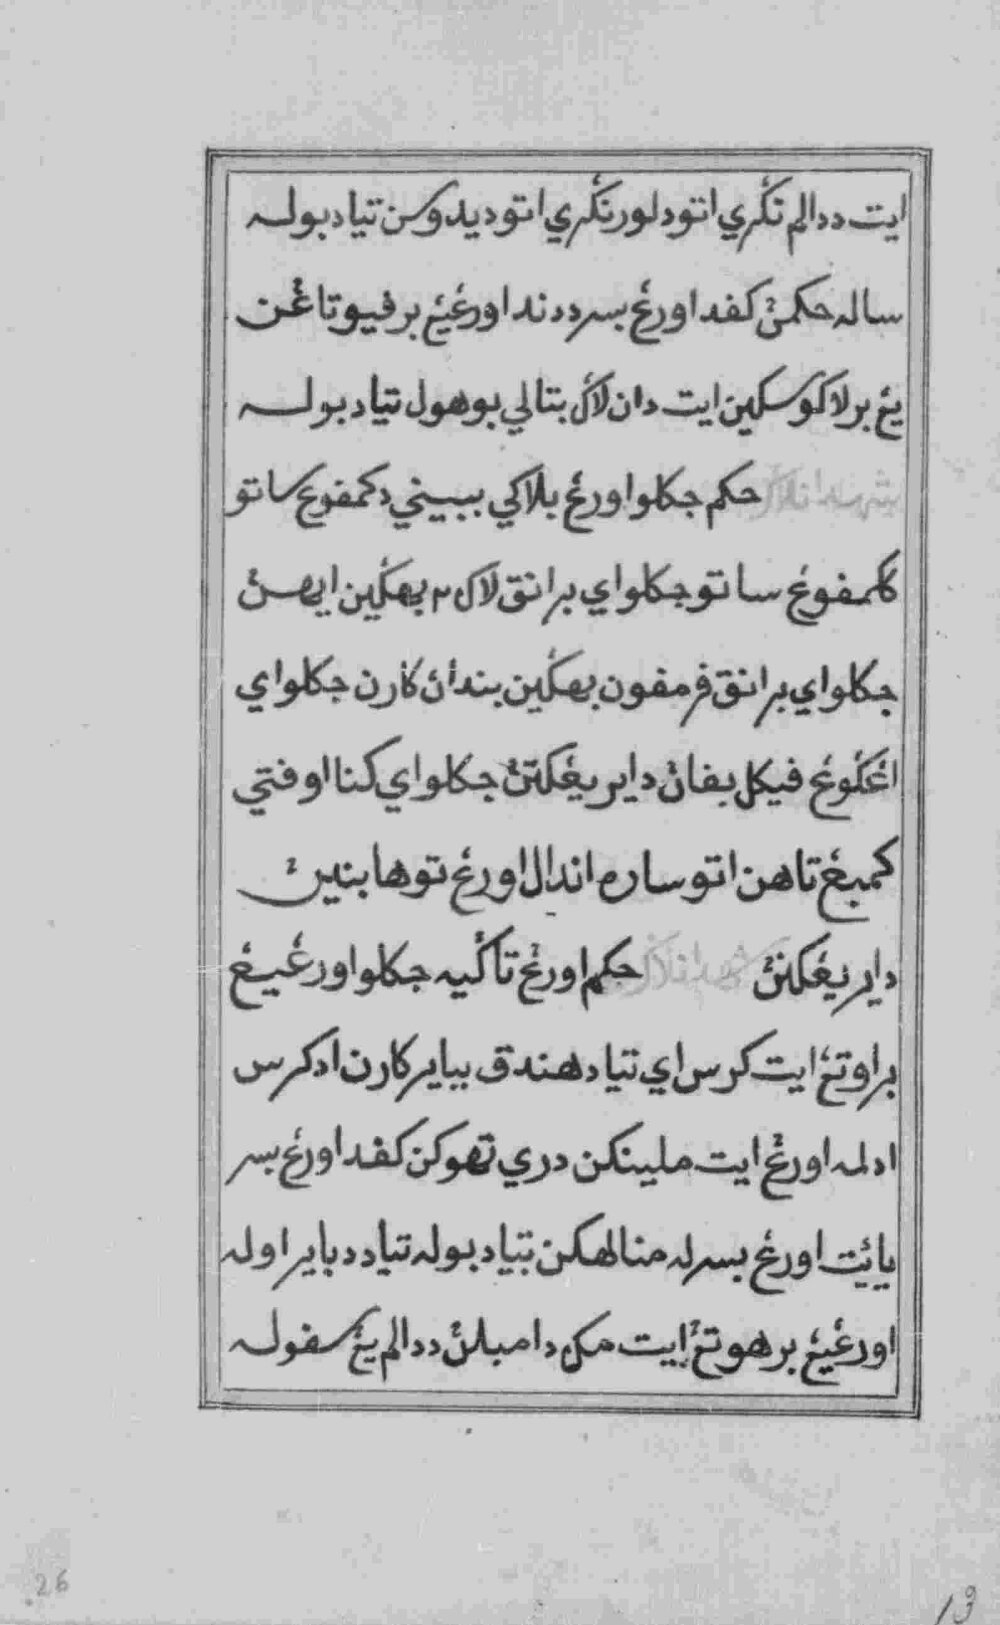 ايت ددالم نݢري اتود لور نݢري اتود يدوسن تيادبوله
ساله حكمڽ كفد اورڠ بسر ددندا ورڠيڠ برفيوتاڠن
يڠ برلاكو سكين ايت دان لاݢ بتالي بوهول تيادبوله
حكم جكلو اورڠ بلاكي ببيني دكمفوڠ ساتو
كامفوڠ ساتو جكلو اي برانق لاكي ٢ بهݢين ايهڽ
جكلو اي برانق فرمفون بهݢين بنداڽ كارن جكلو اي
اڠݢوڠ فيكل بفاڽ دايريڠكنڽ جكلو اي كنا اوفتي
كمبڠ تاهن اتو ساره اندال اورڠ توها بنين
دايريڠكنڽ حكم اورڠ تاݢيه جكلو اورڠيڠ
براوتڠ ايت كرس اي تياد هندق بباير كارن اد كرس
ادله اورڠ ايت ملينكن دري تهوكن كفد اورڠ بسر
يائيت اورڠ بسرله منالهكن تيادبوله تياد دباير اوله
اورڠيڠ برهوتڠ ايت مك دامبلڽ ددالم يڠ سفوله
26
13